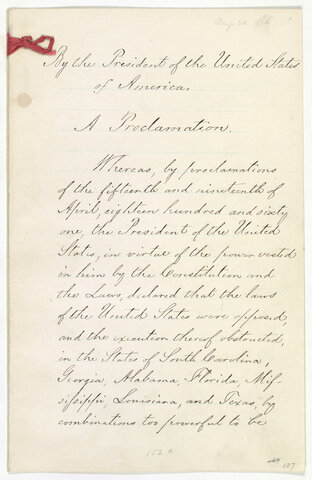 Aug. 20. 66
By the President of the United States
of America.
A Proclamation.
Whereas, by proclamations
of the fifteenth and nineteenth of
April, eighteen hundred and sixty
one, the President of the United
States, in virtue of the power vested
in him by the Constitution and
the Laws, declared that the laws
of the United States were opposed,
and the execution thereof obstructed,
in the States of South Carolina,
Georgia, Alabama, Florida, Mis-
sissippi, Louisiana, and Texas, by
combinations too powerful to be
107